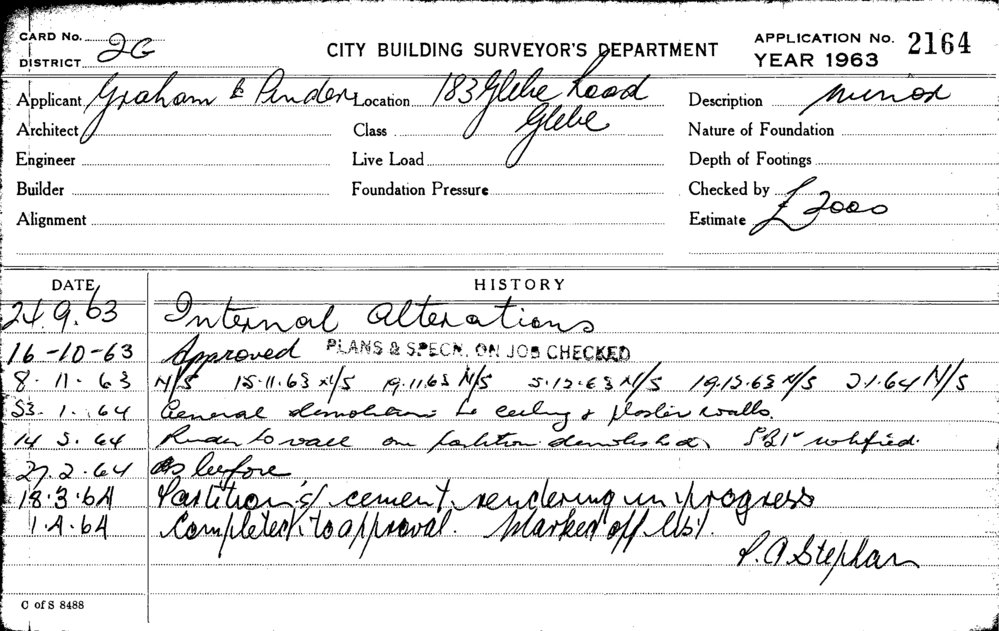 CARD No.
DISTRICT 2G
CITY BUILDING SURVEYOR'S DEPARTMENT
APPLICATION No. 2164
YEAR 1963
Applicant Graham & Pinder Location 183 Glebe Road Description minor
Architect Class Glebe Nature of Foundation
Engineer Live Load Depth of Footings
Builder Foundation Pressure Checked by
Alignment Estimate £2000
DATE HISTORY
24.9.63 Internal Alterations
16-10-63 Approved PLANS & SPECN. ON JOB CHECKED
8.11.63 N/S 15.11.63 N/S 19.11.63 N/S 5.12.63 N/S 19.12.63 N/S 2.1.64 N/S
1.64 General demolition to ceiling & plaster walls.
64 Render to wall on partition demolished, notified.
27.2.64 As before
18.3.64 Partitions/cement rendering in progress
1.4.64 Completed to approval. Marked off list.
Stephan
C of S 8488